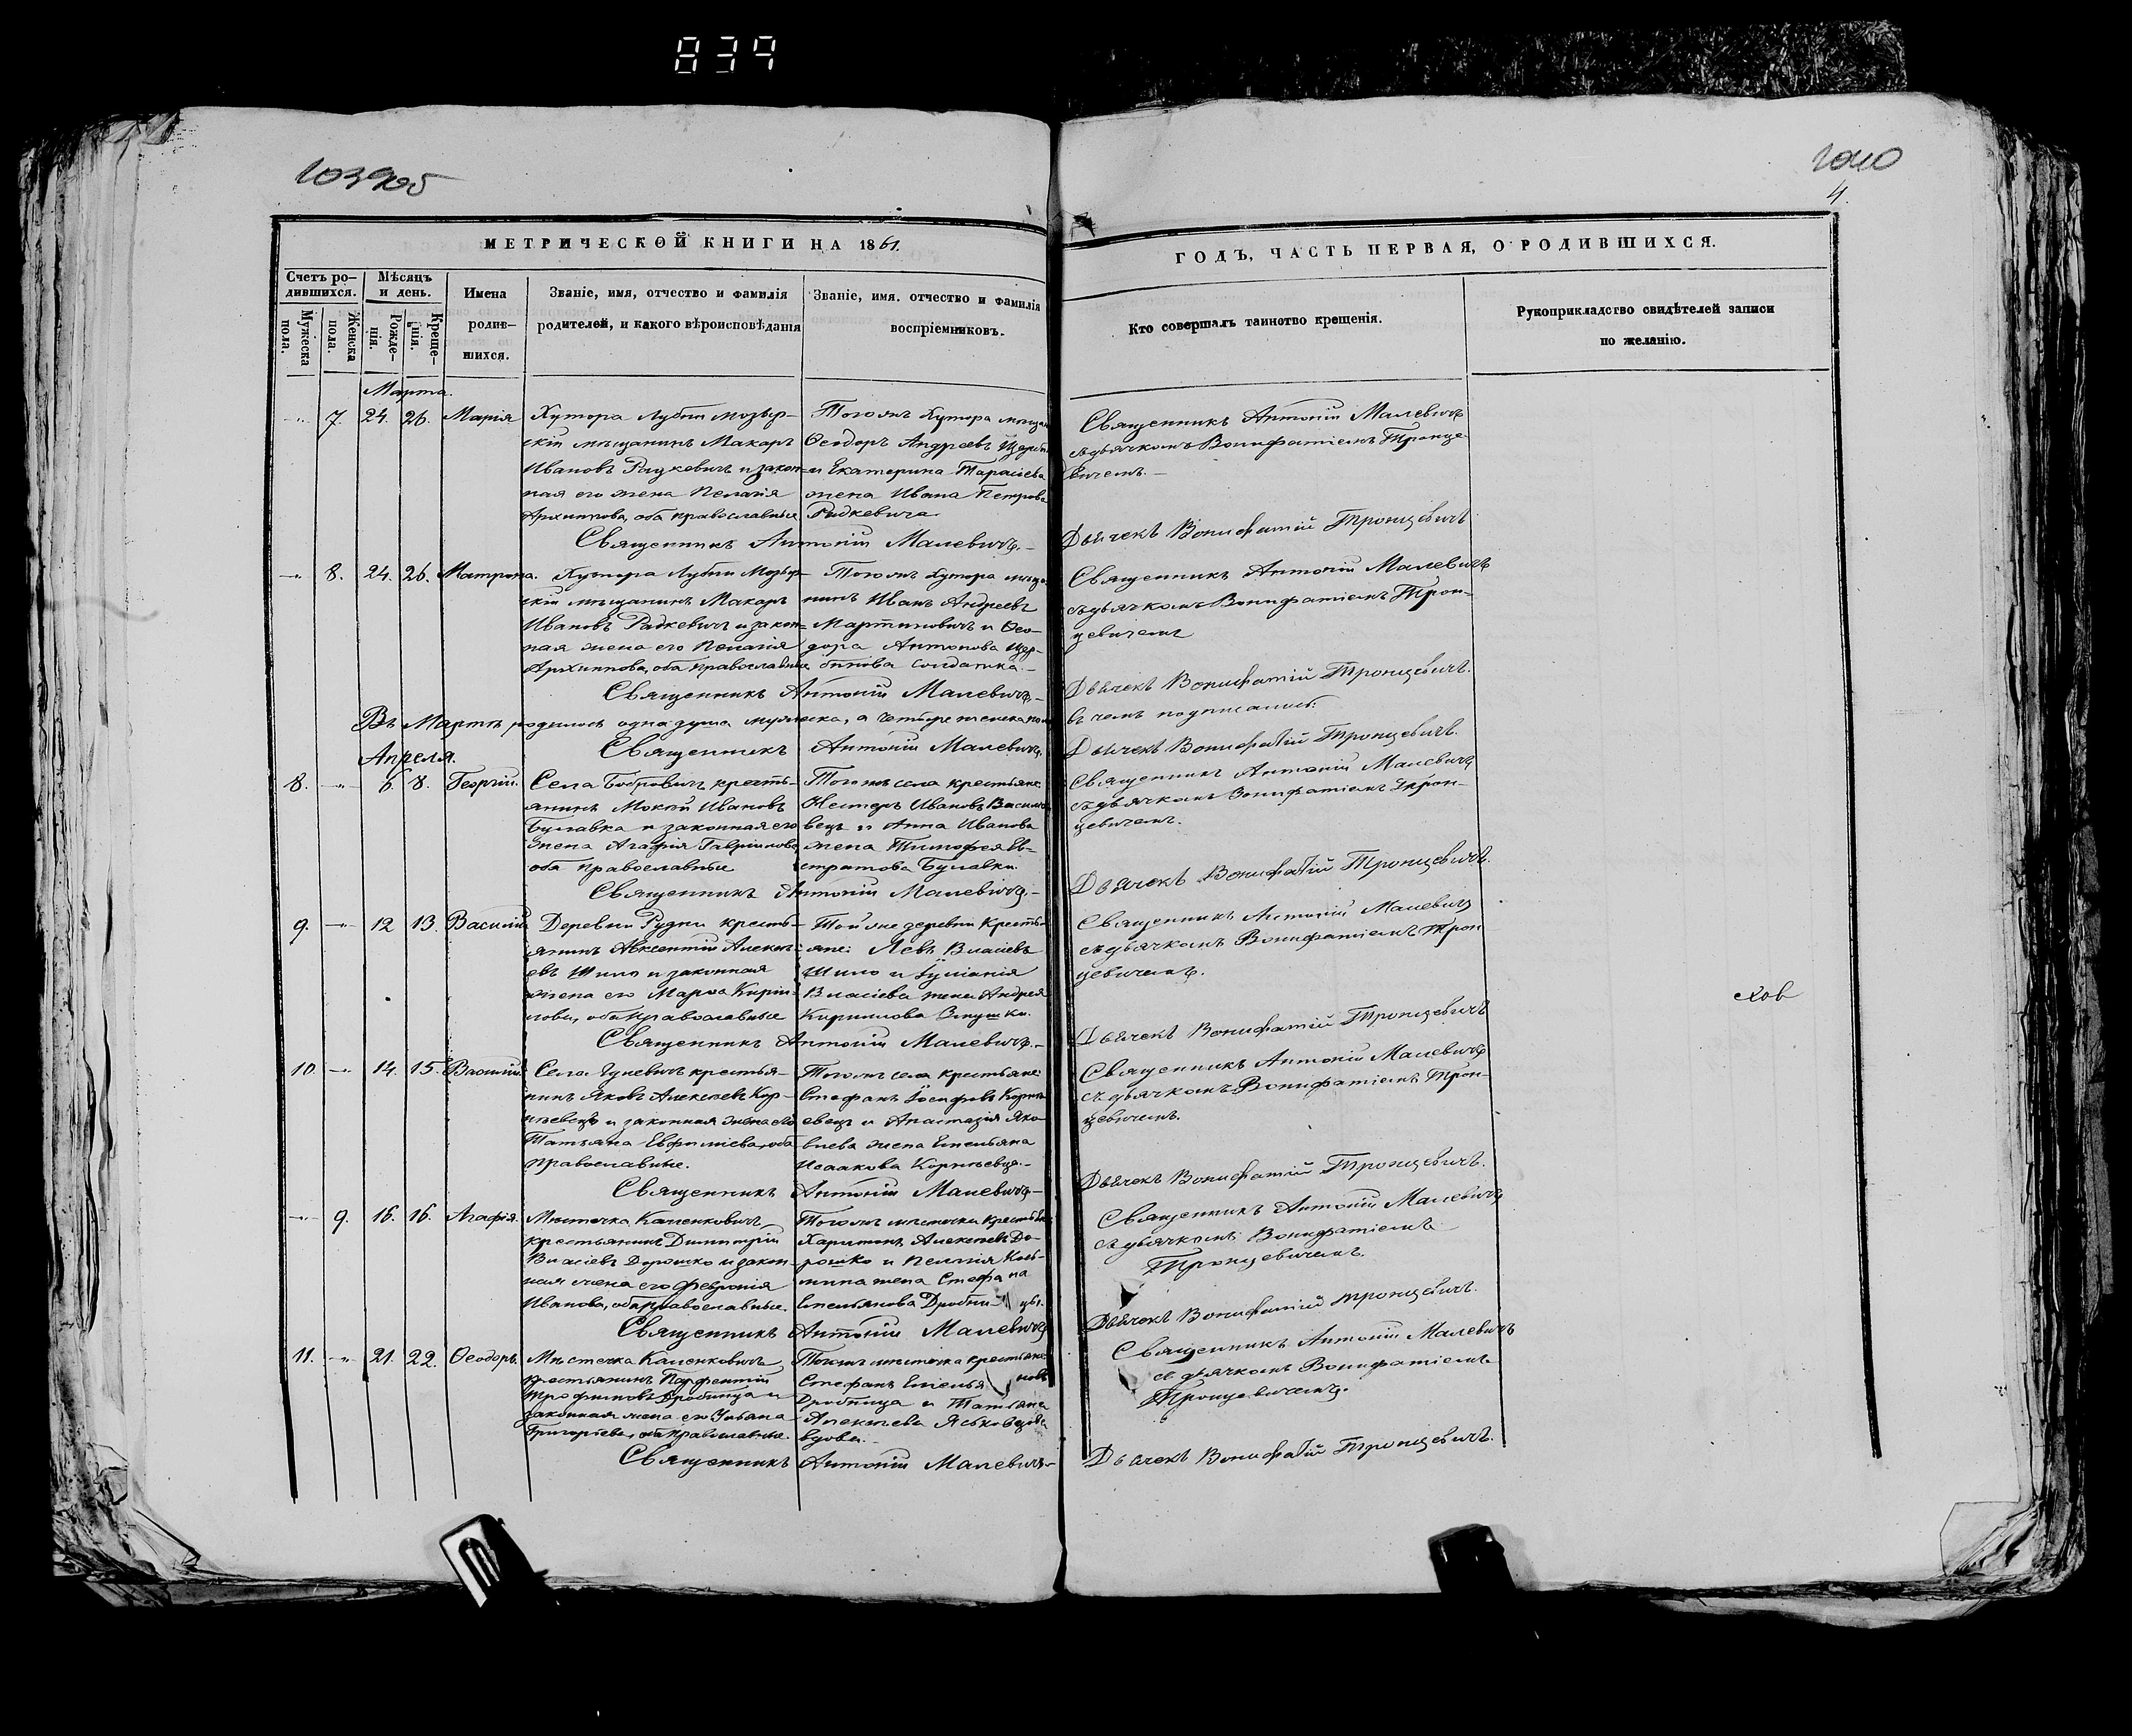 839
103905
1040
4.
МЕТРИЧЕСКОЙ КНИГИ НА 1861.
ГОДЪ, ЧАСТЬ ПЕРВАЯ, О РОДИВШИХСЯ.
Счетъ ро-
дившихся.
Мужеска
пола.
Женска
пола.
Мѣсяцъ
и день.
Рожде-
нія.
Креще-
нія.
Имена
родив-
шихся.
Званіе, имя, отчество и фамилія
родителей, и какого вѣроисповѣданія
Званіе, имя. отчество и фамилія
воспріемниковъ.
Кто совершалъ таинство крещенія.
Рукоприкладство свидѣтелей записи
по желанію.
Марта.
7. 24. 26. Марія
Хутора Лубни мозыр-
скій мѣщанинъ Макаръ
Ивановъ Радкевичъ и закон-
ная его жена Пелагія
Архипова, оба православные
Того жъ хутора мѣщан
Ѳеодоръ Андреевъ
и Екатерина Тарасіева
жена Ивана Петрова
Радкевича
Священникъ Антоній Малевичъ
съ дьячкомъ Вонифатіемъ Тронце
вичемъ.
Священникъ Антоній Малевичъ.
Дьячекъ Вонифатій Тронцевичъ
8. 24. 26. Матрона.
Хутора Лубни Мозыр-
скій мѣщанинъ Макаръ
Ивановъ Радкевичъ и закон-
ная жена его Пелагія
Архиппова, оба православные
Того жъ хутора мѣща
нинъ Иванъ Андреевъ
Мартиновичъ и Ѳео-
дора Антонова Щер-
бинова солдатка.
Священникъ Антоній Малевичъ
съ дьячкомъ Вонифатіемъ Трон-
цевичемъ
Священникъ Антоній Малевичъ.
Дьячекъ Вонифатій Тронцевичъ.
Въ Мартѣ родилось одна душа мужеска, а четыре женска пола
въ чемъ подписались:
Священникъ Антоній Малевичъ.
Дьячекъ Вонифатій Тронцевичъ.
Апреля.
8. 6. 8. Георгій.
Села Бобровичъ кресть-
янинъ Мокій Ивановъ
Булавка и законная его
жена Агафія Гавриилова
оба православные
Того жъ села крестьяне
Несторъ Ивановъ Василе
вецъ и Анна Иванова
жена Тимофея Ев-
стратова Булавки.
Священникъ Антоній Малевичъ
съ дьячкомъ Вонифатіемъ Трон-
цевичемъ.
Священникъ Антоній Малевичъ.
Дьячекъ Вонифатій Тронцевичъ.
9. 12 13. Василій
Деревни Рудни кресть-
янинъ Авксентій Алексѣ-
евъ Шило и законная
жена его Марѳа Кирил-
лова, оба православные
Той же деревни Кресть
яне: Левъ Власіевъ
Шило и Іуліанія
Власіева жена Андрея
Кириллова
Священникъ Антоній Малевичъ
съ дьячкомъ Вонифатіемъ Трон
цевичемъ.
Священникъ Антоній Малевичъ.
Дьячекъ Вонифатій Тронцевичъ
10. 14. 15. Василій.
Села Гулевичъ крестья-
нинъ Яковъ Алексѣевъ Кор-
нѣевецъ и законная жена его
Татьяна Евфиміева, оба
православные.
Того жъ села крестьяне
Стефанъ Іосифовъ Корнѣ
евецъ и Анастазія Яко-
влева жена Емельяна
Исаакова Корнѣевца.
Священникъ Антоній Малевичъ
съ дьячкомъ Вонифатіемъ Трон-
цевичемъ.
Священникъ Антоній Малевичъ
Дьячекъ Вонифатій Тронцевичъ.
9. 16. 16. Агафія.
Мѣстечка Каленковичъ
крестьянинъ Димитрій
Власіевъ Дорошко и закон-
ная жена его Февронія
Иванова, оба православные.
Того жъ мѣстечка крестьяне
Харитонъ Алексѣевъ До-
рошко и Пелагія Козь-
мина жена Стефана
Емельянова Дробницы.
Священникъ Антоній Малевичъ
съ дьячкомъ Вонифатіемъ
Тронцевичемъ.
Священникъ Антоній Малевичъ
Дьячекъ Вонифатій Тронцевичъ.
11. 21. 22. Ѳеодоръ.
Мѣстечка Каленковичъ
крестьянинъ Парфентій
Трофимовъ Дробница и
законная жена его Ульяна
Григорьева, оба православные.
Того жъ мѣстечка крестьяне
Стефанъ Емельяновъ
Дробница и Татьяна
Алексѣева
вдова.
Священникъ Антоній Малевичъ
съ дьячкомъ Вонифатіемъ
Тронцевичемъ.
Священникъ Антоній Малевичъ
Дьячекъ Вонифатій Тронцевичъ.